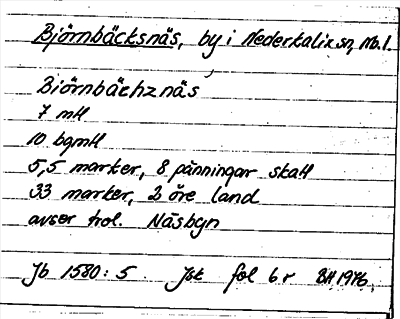 Björnbäcksnäs, by i Nederkalix sn, Nb. l.
Biörnbächznäs
7 mtl
10 bgmtl
5,5 marker, 8 pänningar skatt
33 marker, 2 öre land
avser trol. Näsbyn
Jb 1580:5 Jbk fol 6 r BH 1976